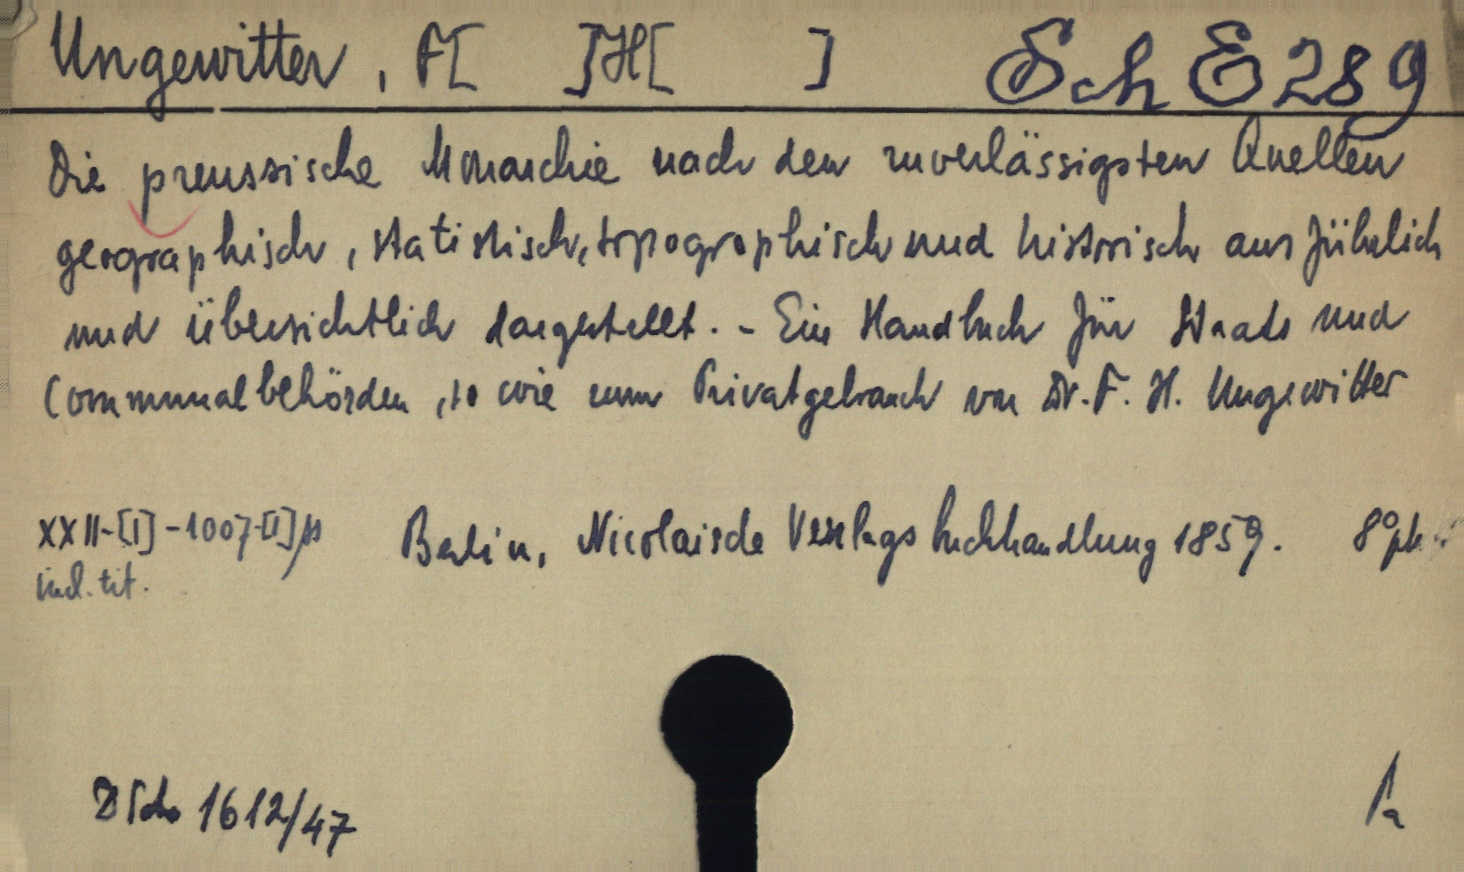 Ungewitter, F[ ]H[ ] Sch E 289
Die preussische Monarchie nach den zuverlässigsten Quellen
geographisch, statistisch, topographisch und historisch ausführlich
und übersichtlich dargestellt. - Ein Handbuch für Staats und
Communalbehörden, so wie zum Privatgebrauch von Dr. F. H. Ungewitter
XXII-[I]-1007-[I] p Berlin, Nicolaische Verlagsbuchhandlung 1859. 8°
incl. tit.
1612/47